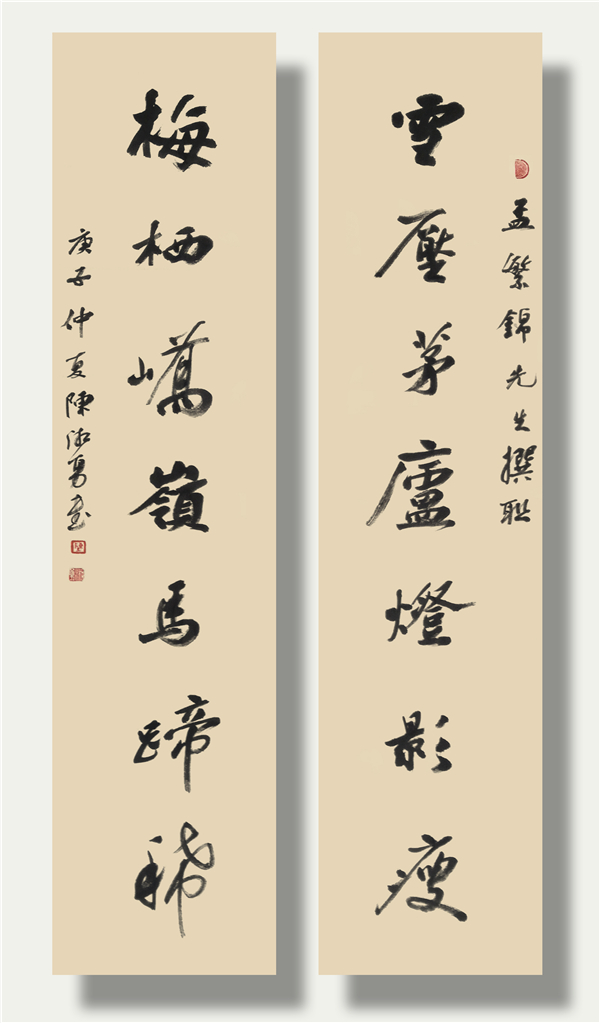 孟繁錦先生撰联
雪壓茅廬燈影瘦
梅栖嶠嶺馬蹄稀
庚子仲夏陳勇書